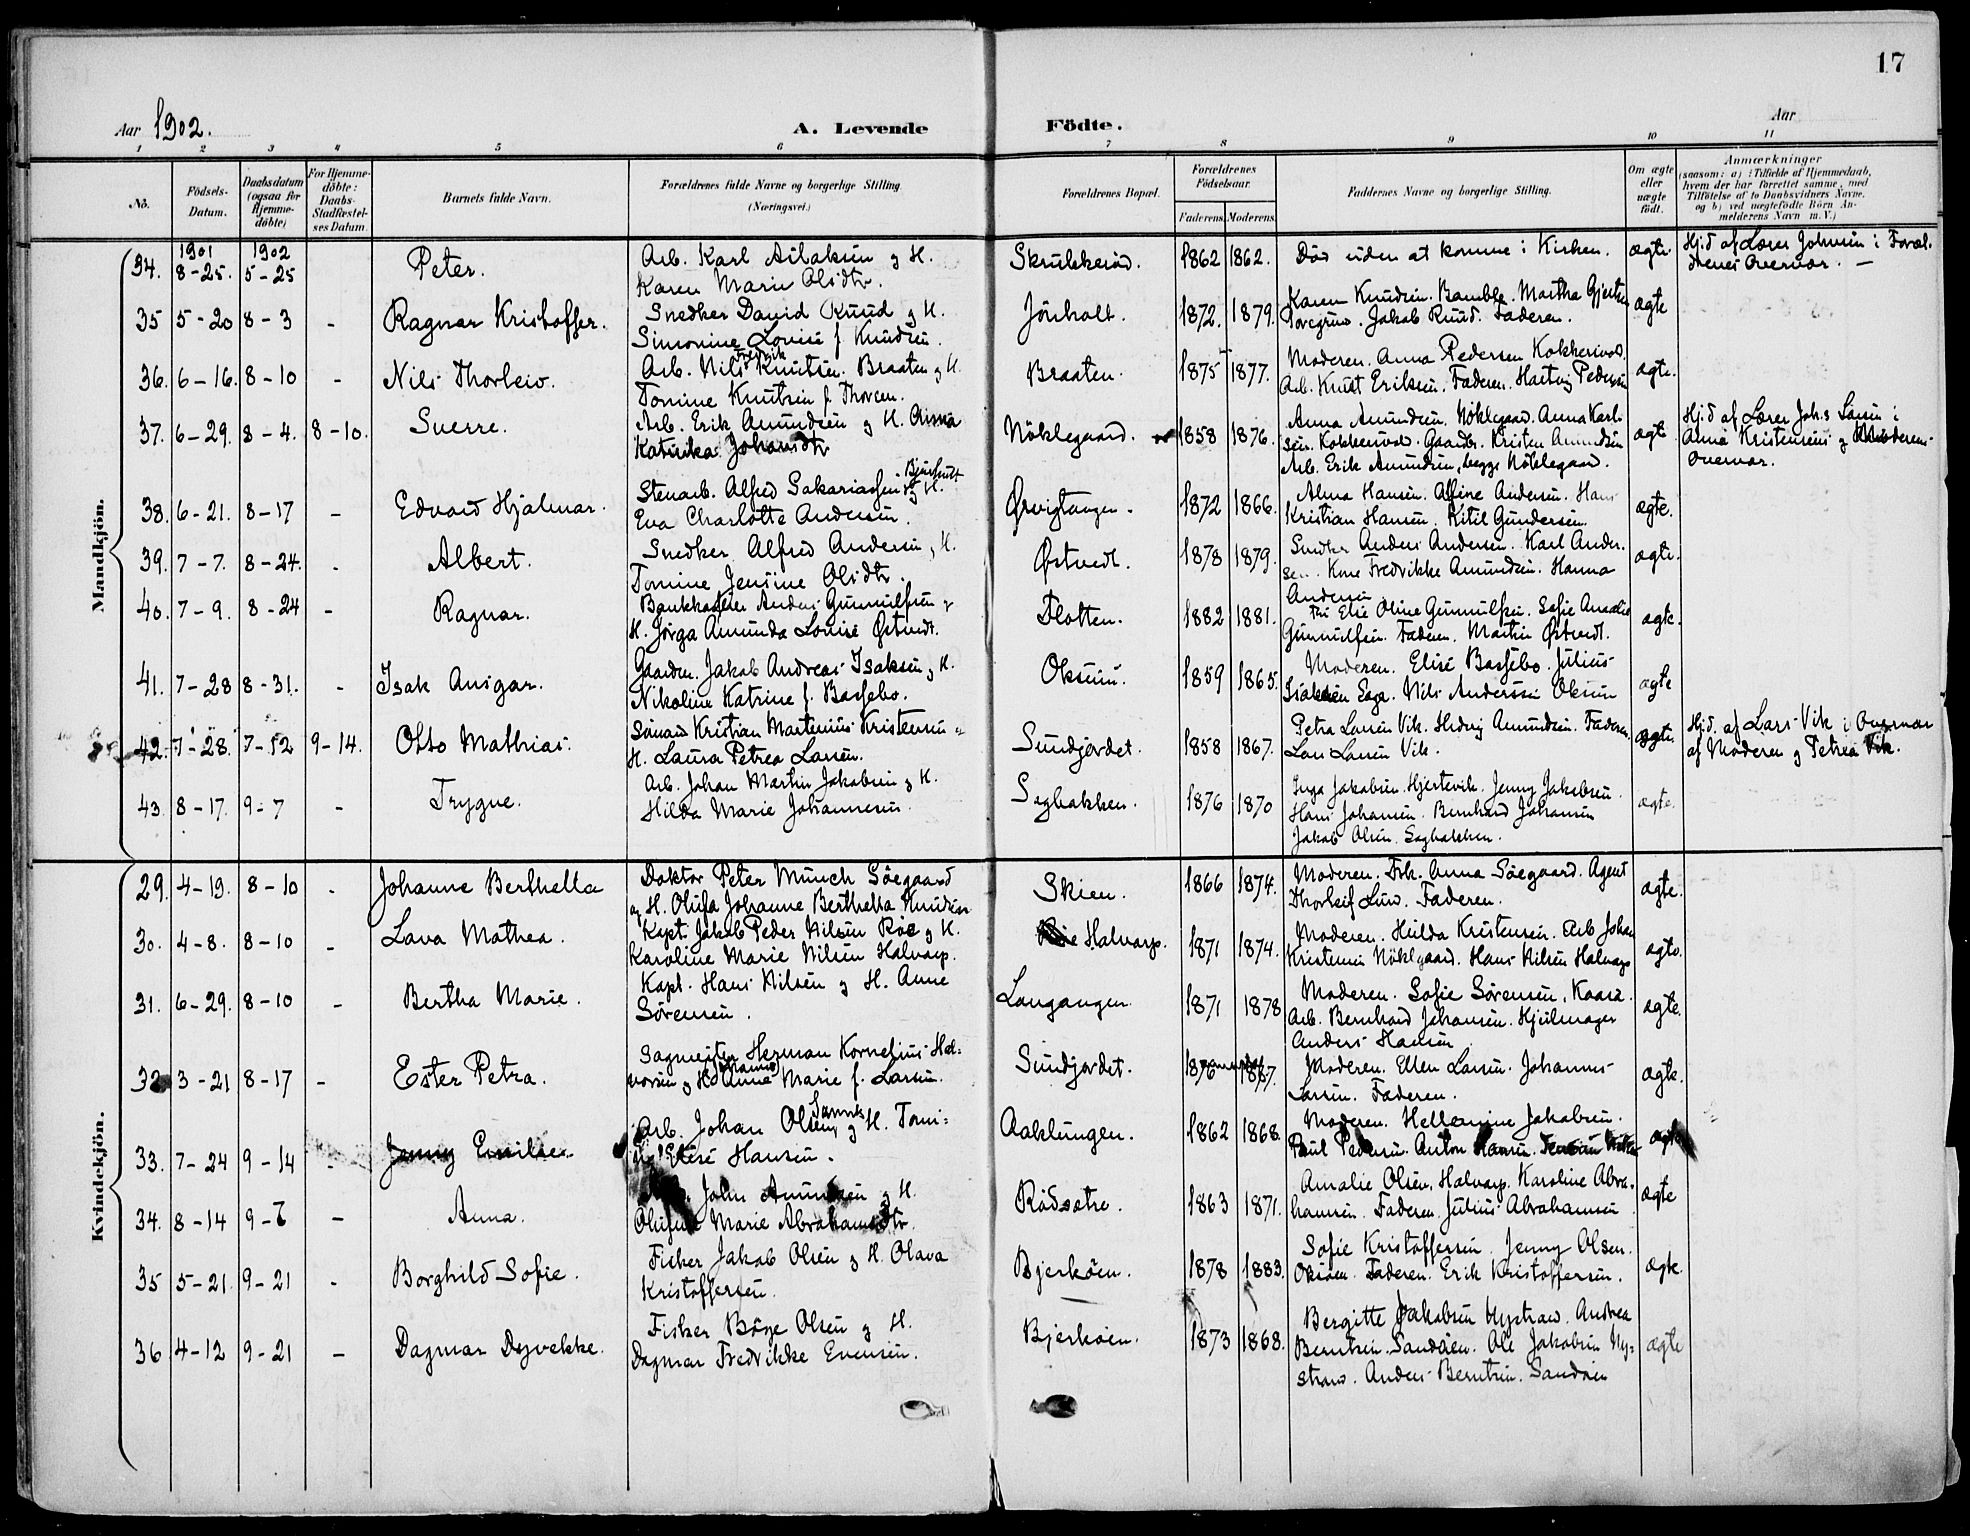 17
Aar 1902.
A. Levende Födte.
Aar
1 2 3 4 5 6 7 8 9 10 11
No.
Födsels-Datum.
Daabsdatum (ogsaa for Hjemme-döbte)
For Hjemme-döbte: Daabs-Stadfæstel-ses Datum.
Barnets fulde Navn.
Forældrenes fulde Navne og borgerlige Stilling
(Næringsvei.)
Forældrenes Bopæl.
Forældrenes Födselsaar.
Faderens. Moderens.
Faddernes Navne og borgerlige Stilling.
Om ægte eller uægte födt.
Anmærkninger
(saasom: a) i Tilfælde af Hjemmedaab,
hvem der har forrettet samme, med
Tilföielse af to Daabsvidners Navne.
og b) ved uægtefödte Börn An-
melderens Navn m. V.)
Mandkjön.
1901 1902
34. 8-25. 5-25 Peter. Arb. Karl Aslaksen og H.
Karen Marie Olsdtr. Skrukkeröd. 1862 1862. Död uden at komme i Kirken. ægte Hjd af Lærer Johnsen i Foræl-
drenes Overvær. -
35 5-20 8-3 - Ragnar Kristoffer. Snedker David Ruud og H.
Simonine Lovise f. Knudsen. Jönholt. 1872. 1879. Karen Knudsen. Bamble. Martha Gjertsen
Porsgrund. Jakob Ruud. Faderen. ægte
36. 6-16. 8-10 - Nils Thorleiv. Arb. Nils Fredrik Knutsen. Braaten og H.
Tomine Knutsen f. Thorsen. Braaten. 1875 1877. Moderen. Anna Pedersen Kokkersvold.
Arb. Knut Eriksen. Faderen. Hartvig Pedersen ægte.
37. 6-29. 8-4. 8-10. Sverre. Arb. Erik Amundsen og H. Anna
Katinka Johansdtr Nöklegaard. 1858 1876. Anna Amundsen. Nöklegaard. Anna Karl-
sen. Kokkersvold. Gaardbr. Kristen Amundsen
Arb. Erik Amundsen, begge Nöklegaard. ægte Hjd af Lærer Johs Larsen i
Anna Kristensens og Moderens
Overvær.
38. 6-21. 8-17 - Edvard Hjalmar. Stenarb. Alfred Sakariassen og H.
Eva Charlotte Andersen. Ørvigtangen. 1872 1866. Alma Hansen. Alfine Andersen. Hans
Kristian Hansen. Kitil Gundersen. ægte.
39. 7-7. 8-24. - Albert. Snedker Alfred Andersen og H.
Tomine Jensine Olsdtr. Østvedt. 1878 1879. Snedker Anders Andersen. Karl Ander-
sen. Kone Fredrikke Amundsen. Hanna
Andersen. ægte.
40. 7-9. 8-24 - Ragnar. Bankkasserer Anders Gunnulfsen og
H. Jörga Amunda Louise Østvedt. Flotten. 1882 1881. Elise Oline Gunnulfsen. Sofie Amalie
Gunnulfsen. Faderen. Martin Østvedt. ægte.
41. 7-28 8-31. - Isak Ansgar. Gaardm. Jakob Andreas Isaksen og H.
Nikoline Katrine f. Bassebo. Oksum. 1859 1865. Moderen. Elise Bassebo. Julius
Isaksen Ega. Nils Andersen Oksum ægte
42. 7-28. 7-12 9-14. Otto Mathias. Sömand Kristian Martenius Kristensen og
H. Laura Petrea Larsen. Sundjordet. 1858 1867. Petra Larsen Vik. Hedvig Amundsen. Faderen.
Lars Larsen Vik. ægte. Hjd. af Lars Vik i Overvær
af Moderen og Petrea Vik.
43 8-17. 9-7 - Trygve. Arb. Johan Martin Jakobsen og H.
Hilda Marie Johannesen. Sagbakken. 1876 1870 Inga Jakobsen. Hjertevik. Jenny Jakobsen.
Hans Johansen. Bernhard Johansen
Jakob Olsen. Sagbakken. ægte.
Kvindekjön.
29. 4-19. 8-10 - Johanne Berthella Doktor Peter Munch Söegaard
og H. Olufa Johanne Berthella Knudsen Skien. 1866 1874. Moderen. Frk. Anna Söegaard. Agent
Thorleif Lund. Faderen. ægte.
30. 4-8. 8-10 - Lava Mathea. Kapt. Jakob Peder Nilsen Röe og H.
Karoline Marie Nilsen Halvarp. Halvarp. 1871 1874. Moderen. Hilda Kristensen. Arb Johan
Kristensen Nöklegaard. Hans Nilsen Halvarp ægte.
31. 6-29. 8-10 - Bertha Marie. Kapt. Hans Nilsen og H. Anne
Sörensen. Langangen. 1871 1878 Moderen. Sofie Sörensen, Kaasa.
Arb. Bernhard Johansen. Hjulmager
Anders Hansen ægte.
32 3-21 8-17 - Ester Petra. Sagmester Herman Kornelius Hal-
vorsen og H. Johanne Marie f. Larsen. Sundjordet. 1876 1867. Moderen. Ellen Larsen. Johannes
Larsen. Faderen. ægte.
33. 7-24 9-14 - Jenny Emilie Arb. Johan Olsen og H. Tomi-
ne Elise Hansen. Aaklungen. 1862 1868. Moderen. Hellemine Jakobsen.
Paul Pedersen. Anton Hansen. ægte
34. 8-14 9-7 - Anna. John Amundsen og H.
Olufine Marie Abrahamsdtr. Rödsætre. 1863 1871. Amalie Olsen, Halvarp. Karoline Abra-
hamsen. Faderen. Julius Abrahamsen ægte
35 5-21. 9-21 - Borghild Sofie. Fisker Jakob Olsen og H. Olava
Kristoffersen. Bjerköen. 1878 1883. Sofie Kristoffersen. Jenny Olsen.
Oksöen. Faderen. Erik Kristoffersen. ægte.
36 4-12 9-21 - Dagmar Dyvekke. Fisker Börge Olsen og H.
Dagmar Fredrikke Evensen. Bjerköen. 1873 1868. Bergitte Jakobsen Nystrand. Andrea
Berntsen. Sandöen. Ole Jakobsen Ny-
strand. Anders Berntsen. Sandöen ægte